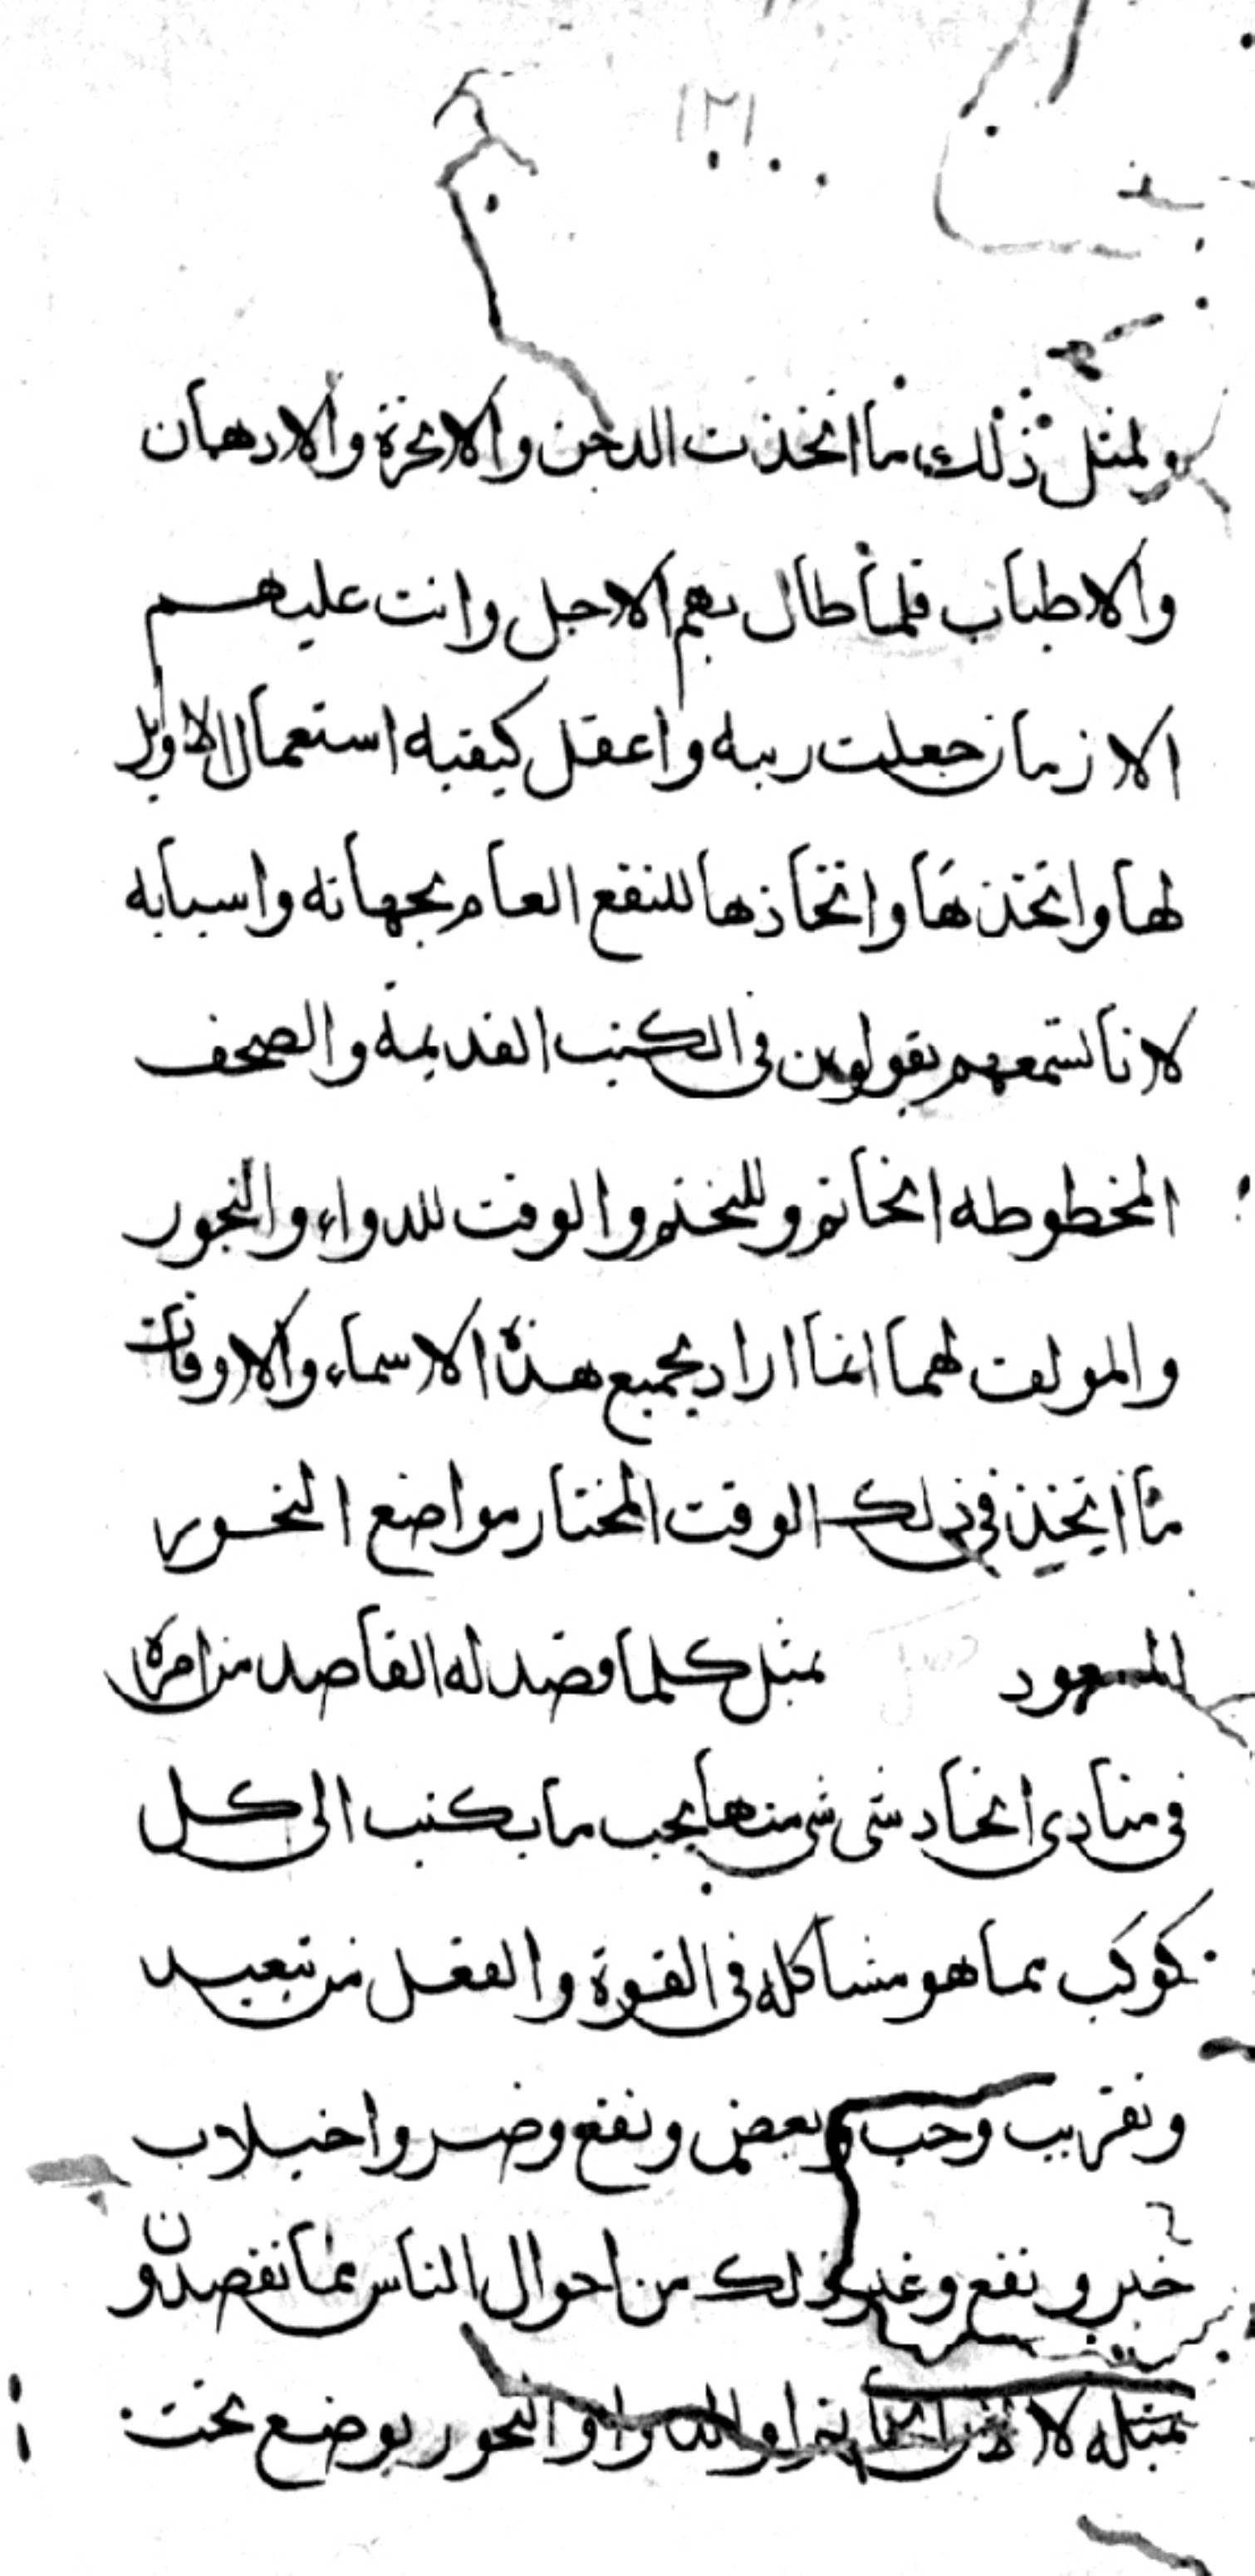 ١٢١
ولمثل ذلك ما اتخذت الدخن والابخرة والادهان
والاطباب فلما طال بهم الاجل واتت عليهم
الازمان جعلت ربيه واعقل كيفيه استعمال الاوايل
لها واتخذها واتخاذها للنفع العام بجهاته واسبابه
لانا نسمعهم يقولون في الكتب القديمة والصحف
المخطوطه الخاتم وللختم والوقت للدواء والبخور
والمولف لهما انما اراد بجميع هذه الاسماء والاوقات
ما اتخذ في ذلك الوقت المختار مواضع البخور
المسعود بمثل كلما قصد له القاصد من امره
في مبادي اتخاد شي شي منها يجب ما يكتب الى كل
كوكب بما هو مشاكله في القوة والفعل من تبعيد
وتقريب وحب وبعض ونفع وضر واختلاب
خير ونفع وغير ذلك من احوال الناس مما تقصدون
بمثله لان الخاتم او الدوا والبخور يوضع تحت